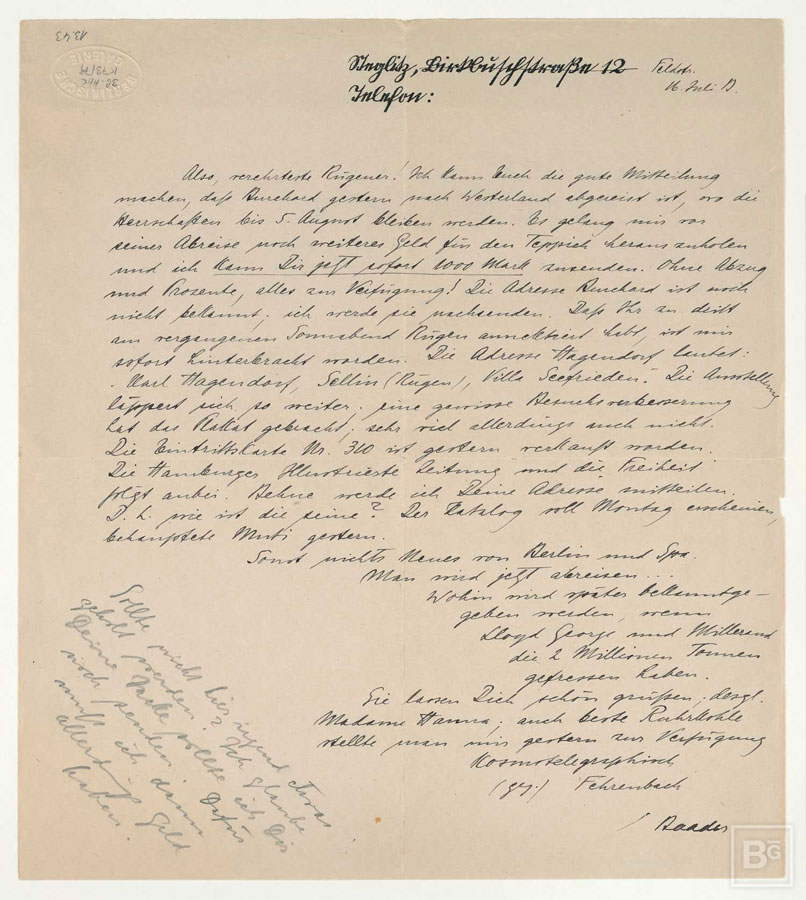 13.43
BERLINISCHE
GALERIE
K73/79
Steglitz, Birkbuschstraße 12
Telefon:
Feldstr.
16. Juli
Also, verehrteste Rügener! Ich kann Euch die gute Mitteilung
machen, daß Burchard gestern nach Westerland abgereist ist, wo die
Herrschaften bis 5. August bleiben werden. Es gelang mir vor
seiner Abreise noch weiteres Geld für den Teppich herauszuholen
und ich kann Dir jetzt sofort 1000 Mark zusenden. Ohne Abzug
und Prozente, alles zur Verfügung! Die Adresse Burchard ist noch
nicht bekannt; ich werde sie nachsenden. Daß Ihr zu dritt
am vergangenen Sonnabend Rügen annektiert habt, ist mir
sofort hinterbracht worden. Die Adresse Hagendorf lautet:
"Karl Hagendorf, Sellin (Rügen), Villa Seefrieden". Die Ausstellung
läppert sich so weiter; eine gewisse Besuchsverbesserung
hat das Plakat gebracht; sehr viel allerdings auch nicht.
Die Eintrittskarte Nr. 310 ist gestern verkauft worden.
Die Hamburger Illustrierte Zeitung und die Freiheit
folgt anbei. Behne werde ich Deine Adresse mitteilen.
D. h. wie ist die seine? Der Katalog soll Montag erscheinen,
behauptete Muti gestern.
Sonst nichts Neues von Berlin und Spa.
Man wird jetzt abreisen...
Wohin wird später bekanntge-
geben werden, wenn
Lloyd George und Millerand
die 2 Millionen Tonnen
gefressen haben.
Sie lassen Dich schön grüßen, desgl.
Madame Hanna; auch beste Ruhrkohle
stellte man mir gestern zur Verfügung
Kosmotelegraphisch
(gez.) Fehrenbach
Baader
Sollte nicht hier irgend etwas
geholt werden? Ich glaube
Deine Jacke sollte ich Dir
noch senden. Dafür
muß ich dann
allerdings Geld
haben.
BG